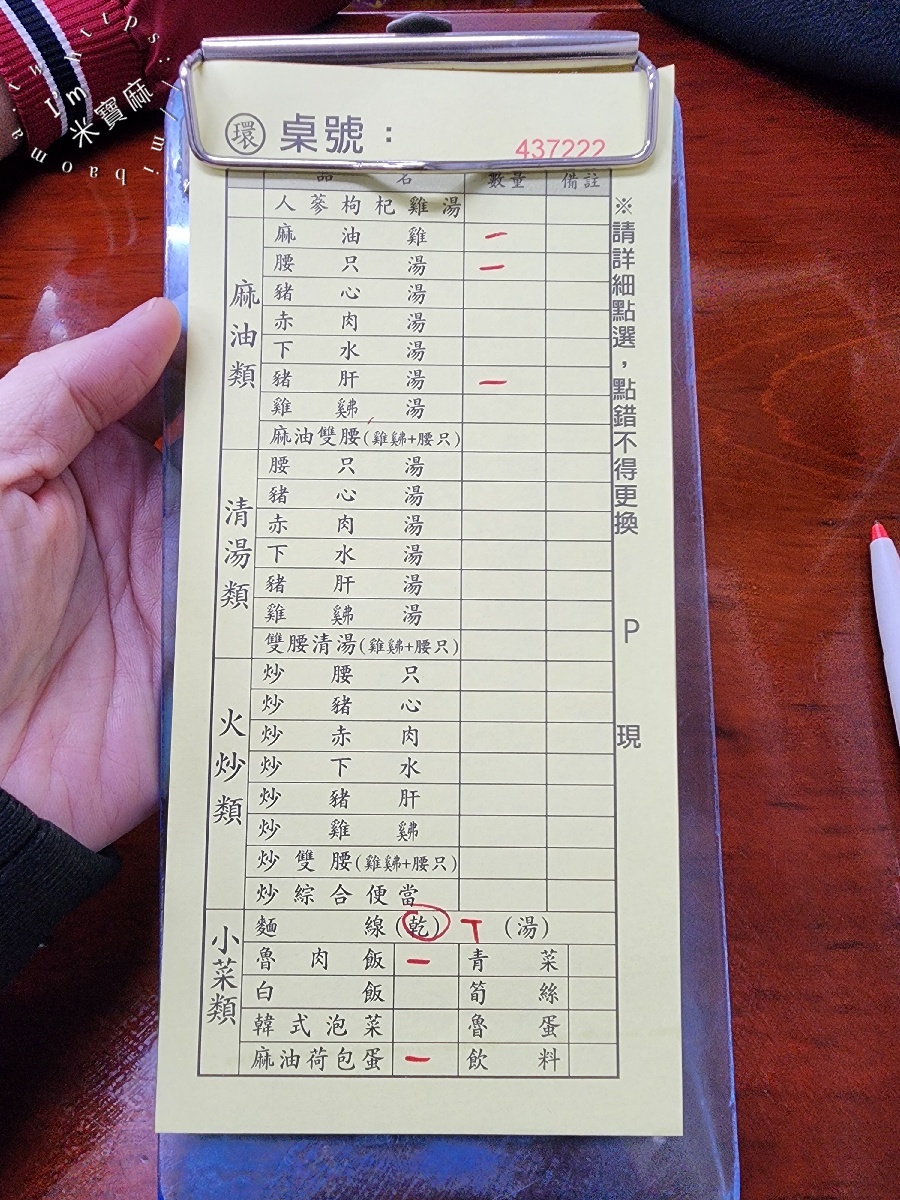 Im
米寶麻
環 桌號：
437222
品名 數量 備註
人蔘枸杞雞湯
麻油類
麻油雞 一
腰只湯 一
豬心湯
赤肉湯
下水湯
豬肝湯 一
雞鵤湯
麻油雙腰(雞鵤+腰只)
清湯類
腰只湯
豬心湯
赤肉湯
下水湯
豬肝湯
雞鵤湯
雙腰清湯(雞鵤+腰只)
火炒類
炒腰只
炒豬心
炒赤肉
炒下水
炒豬肝
炒雞鵤
炒雙腰(雞鵤+腰只)
炒綜合便當
小菜類
麵線(乾) T (湯)
魯肉飯 一 青菜
白飯 筍絲
韓式泡菜 魯蛋
麻油荷包蛋 一 飲料
※請詳細點選，點錯不得更換
P
現